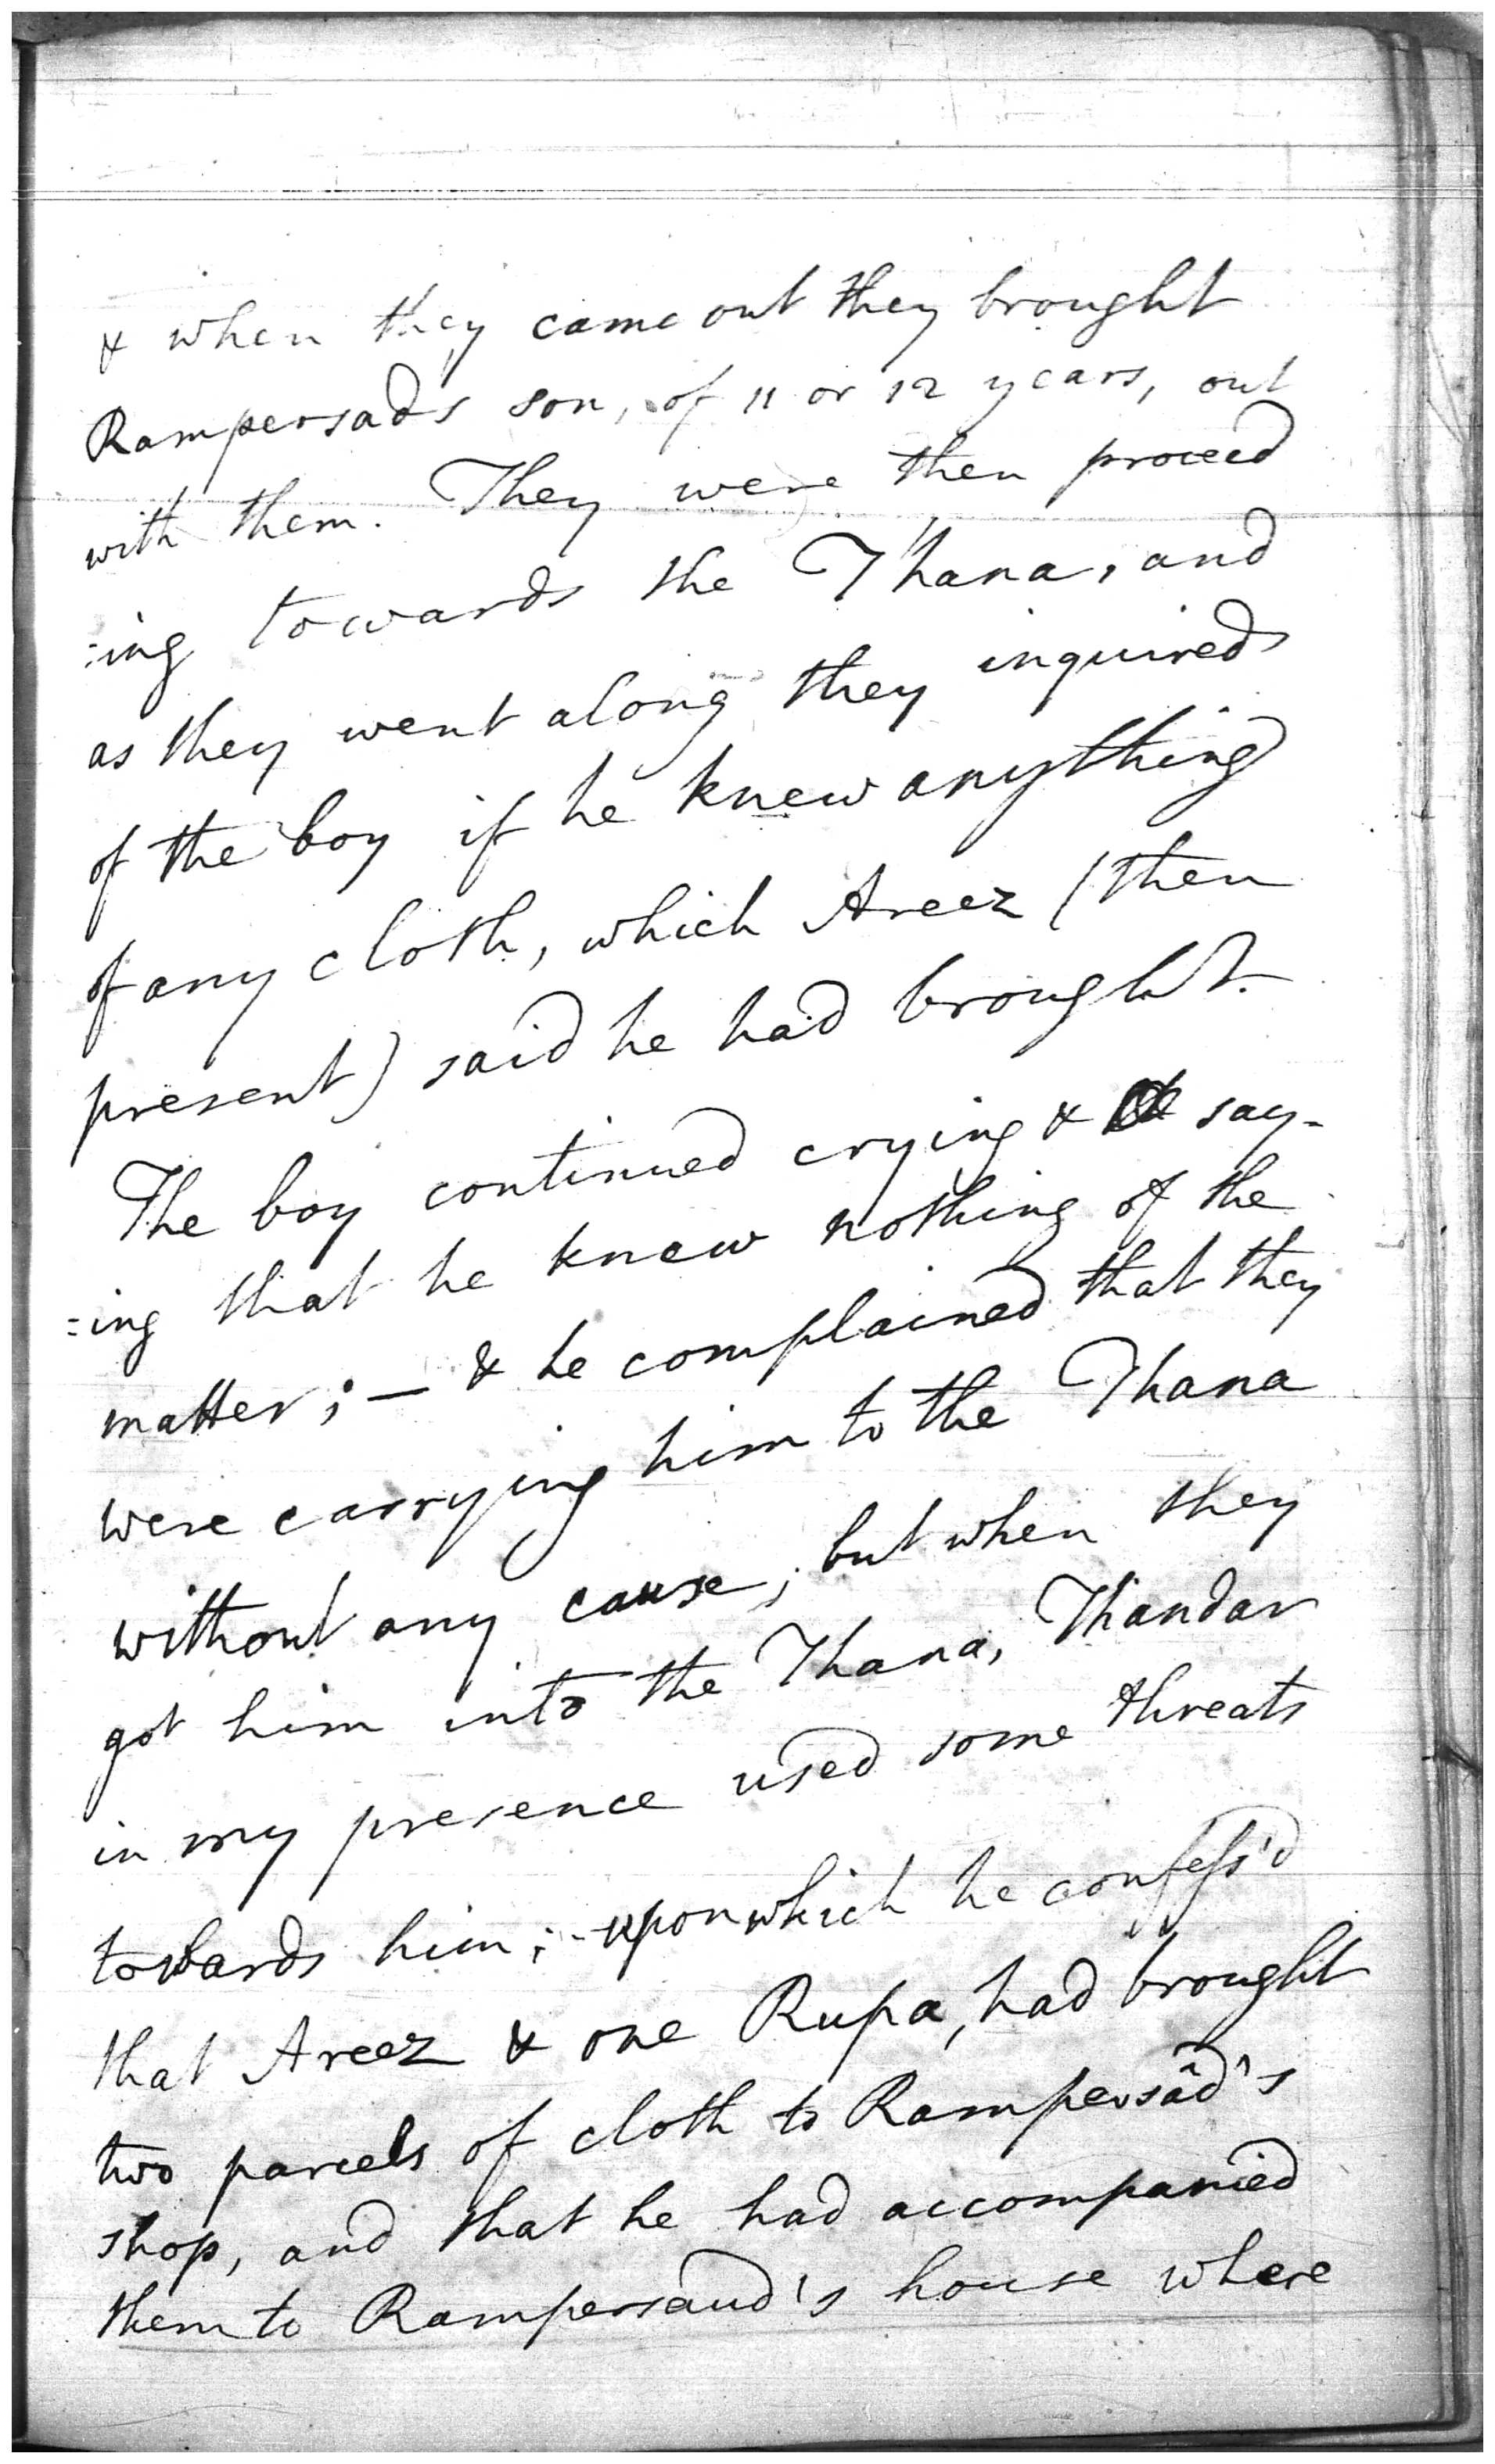 & when they came out they brought
Rampersads son, of 11 or 12 years, out
with them. They were then proceed
:ing towards the Thana, and
as they went along they inquired
of the boy if he knew anything
of any cloth, which Areez (then
present) said he had brought.
The boy continued crying & say-
:ing that he knew nothing of the
matter; — & he complained that they
were carrying him to the Thana
without any cause; but when they
got him into the Thana, Thandar
in my presence used some threats
towards him; - upon which he confess'd
that Areez & one Rupa, had brought
two parcels of cloth to Rampersâd's
shop, and that he had accompanied
them to Rampersaud's house where